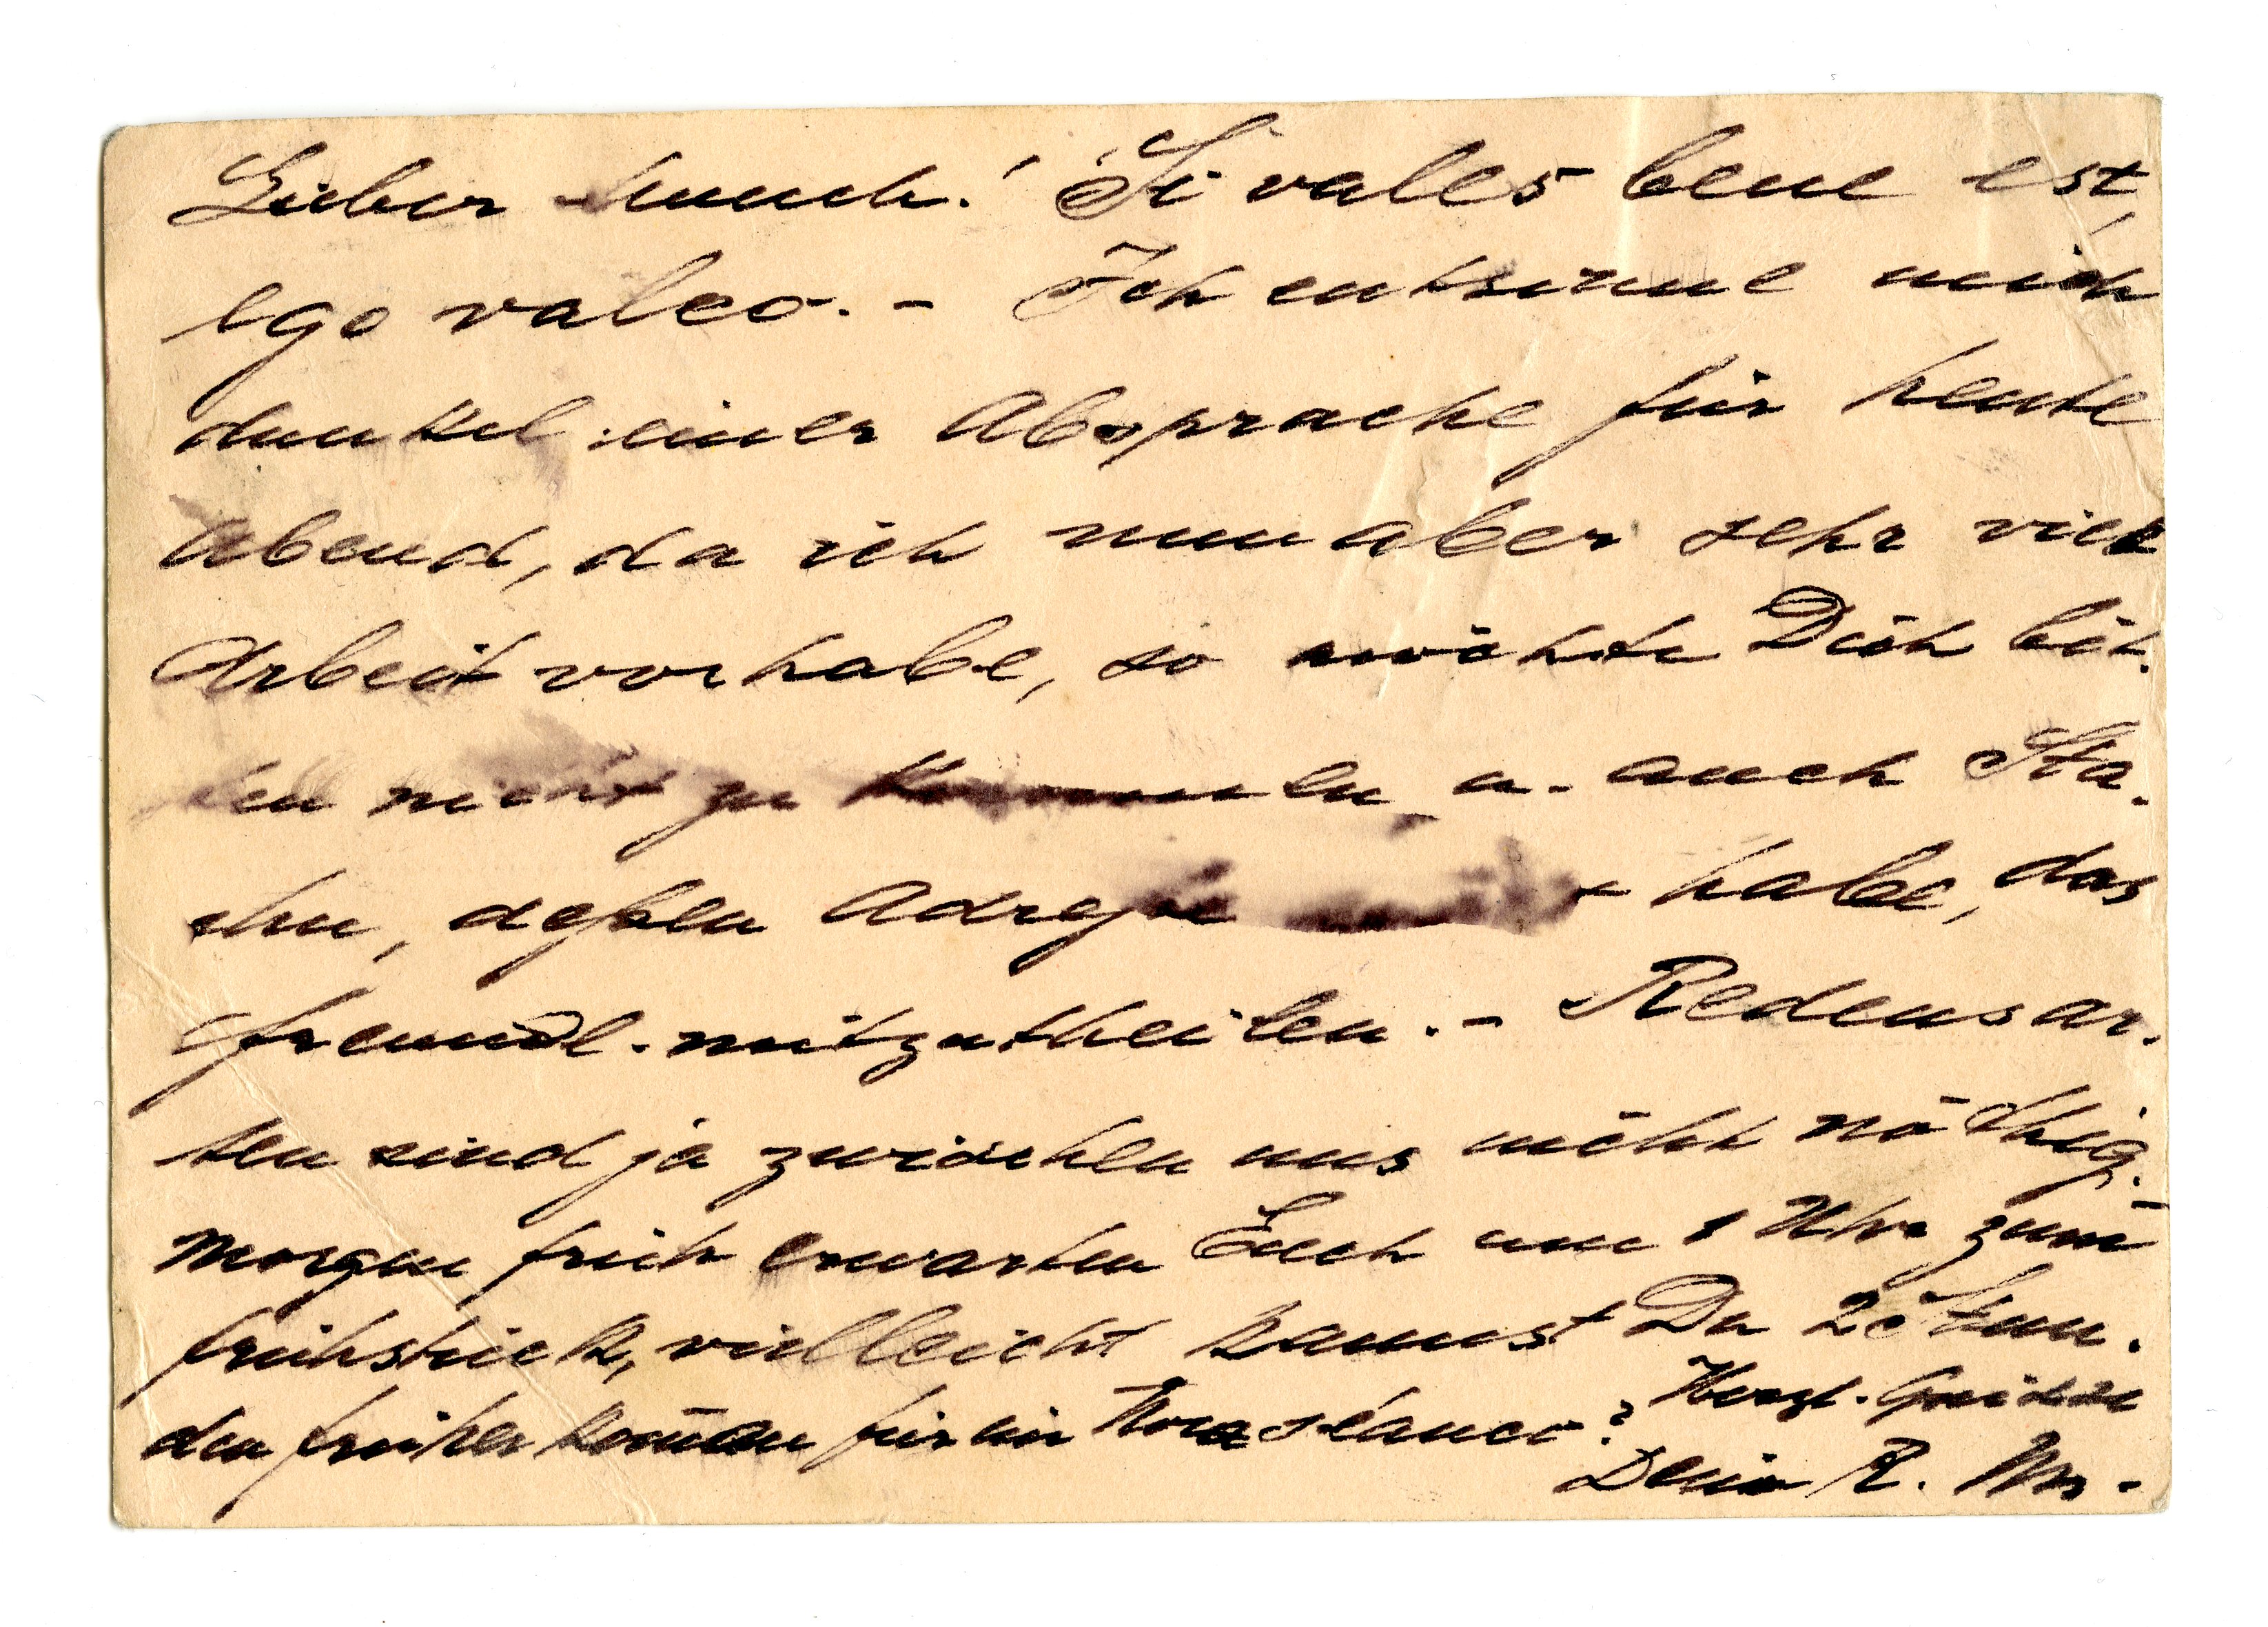 Lieber Munch! Si vales bene est,
ego valeo. - Ich entsinne mich
dunkel einer Absprache für heute
Abend, da ich nun aber sehr viel
Arbeit vorhabe, so möchte Dich bit-
ten nicht zu kommen, u. auch Sta-
chu, deßen Adreße nicht habe, das
freundl. mitzutheilen. - Redensar-
ten sind ja zwischen uns nicht nöthig. -
Morgen früh erwarten Euch um 1 Uhr zum
Frühstück, vielleicht kannst Du 2 Stun-
den früher kom̄en für ein
Herzl. Grüße
Dein R. M.